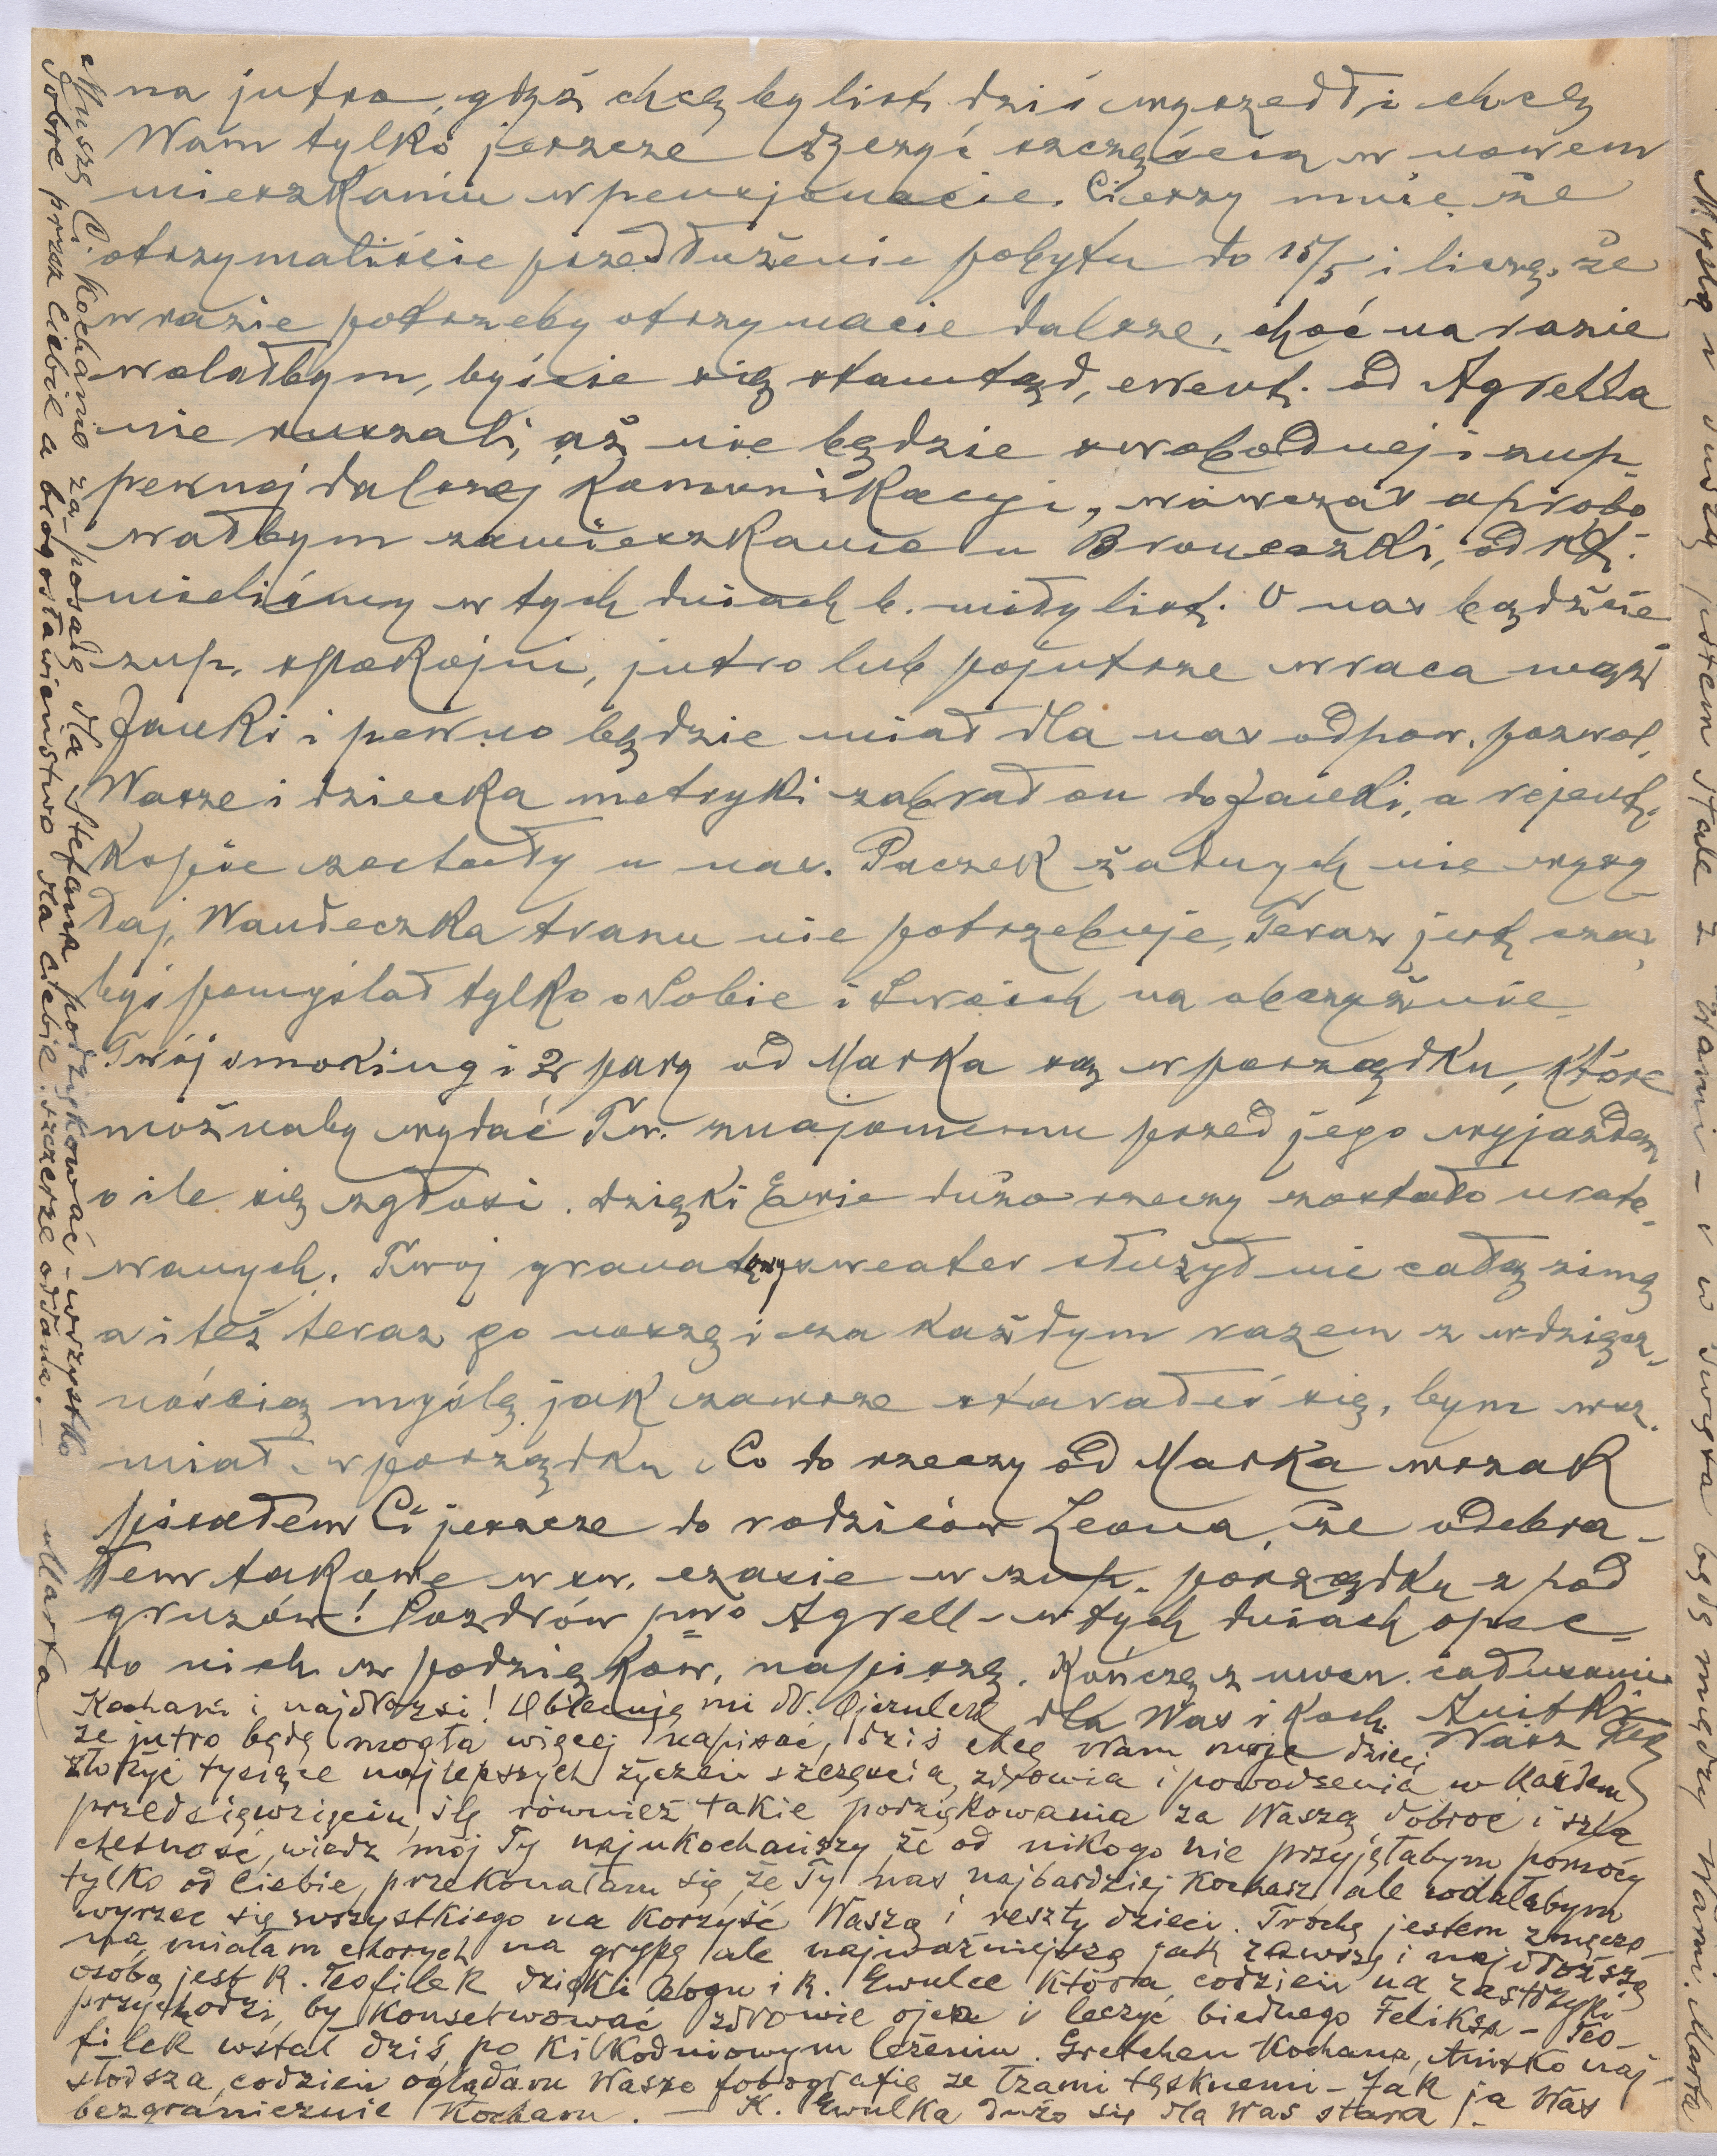 na jutro, gdyż chcę by list dziś wyszedł i chcę
Wam tylko jeszcze życzyć szczęścia w nowem
mieszkaniu w pensjonacie. Cieszy mnie że
otrzymaliście przedłużenie pobytu do 15/5 i liczę, że
w razie potrzeby otrzymacie dalsze, choć na razie
wolałbym, byście się stamtąd, ewent. od Agrella
nie ruszali, aż nie będzie swobodnej i zup.
pewnej dalszej komunikacyi, wówczas aprobo
wałbym zamieszkanie u Broneczki, od kt.
mieliśmy w tych dniach b. miły list. O nas bądźcie
zup. spokojni, jutro lub pojutrze wraca mąż
Janki i pewno będzie miał dla nas odpow. pozwol.
Wasze i dziecka metryki zabrał on do Janki, a rejent.
kopie zostały u nas. Paczek żadnych nie wysy
łaj, Wandeczka tranu nie potrzebuje, Teraz jest czas,
byś pomyślał tylko o Sobie i Swoich na obczyźnie
Twój smoking i 2 pary od Marka są w porządku, które
możnaby wydać Tw. znajomemu przed jego wyjazdem
o ile się zgłosi. dzięki Ewie dużo rzeczy zostało urato-
wanych. Twój granatowy sweater służył mi całą zimę
a i też teraz go noszę i za każdym razem z wdzięcz-
nością myślę jak zawsze starałeś się, bym wsz.
miał w porządku Co do rzeczy od Marka wszak
pisałem Ci jeszcze do rodziców Leona, że odebra-
łem takowe w sw. czasie w zup. porządku z pod
gruzów! Pozdrów pwo Agrell - w tych dniach opse
do nich z podziękow. napiszę. Kończę z ucałowaniem
dla Was i Koch. Anitki
Wasz Teof
Kochani i najdrożsi! Obiecuję mi dr. Ojczulek
że jutro będę mogła więcej napisać, dziś chcę Wam moje dzieci
złożyć tysiące najlepszych życzeń szczęścia, zdrowia i powodzenia w każdem
przedsięwzięciu, ślę również takie podziękowania za Waszą dobroć i szla
chetność, wiedz mój Ty najukochańszy że od nikogo nie przyjęłabym pomocy
tylko od Ciebie, przekonałam się, że Ty nas najbardziej kochasz ale wolałabym
wyrzec się wszystkiego na korzyść Waszą i reszty dzieci. Trochę jestem zmęczo-
na, miałam chorych na grypę ale najważniejszą jak zawsze i najdroższą
osobą jest K. Teofilek dzięki Bogu i K. Ewulce która codzień na zastrzyki
przychodzi, by konserwować zdrowie ojca i leczyć biednego Feliksa - Teo-
filek wstał dziś po kilkodniowym leżeniu. Gretchen Kochana, Anitko naj-
słodsza, codzień oglądam Wasze fotografie ze łzami tęsknemi - Jak ja Was
bezgranicznie Kocham. - K. Ewulka dużo się dla Was stara
Muszę Ci kochanie za posadę dla Stefana podziękować - wszystko
dobre przez Ciebie a błogosławieństwo dla Ciebie. szczerze oddana. -
Marta
Myślą i duszą jestem stale z Wami - i w święta będę między Wami. Marta